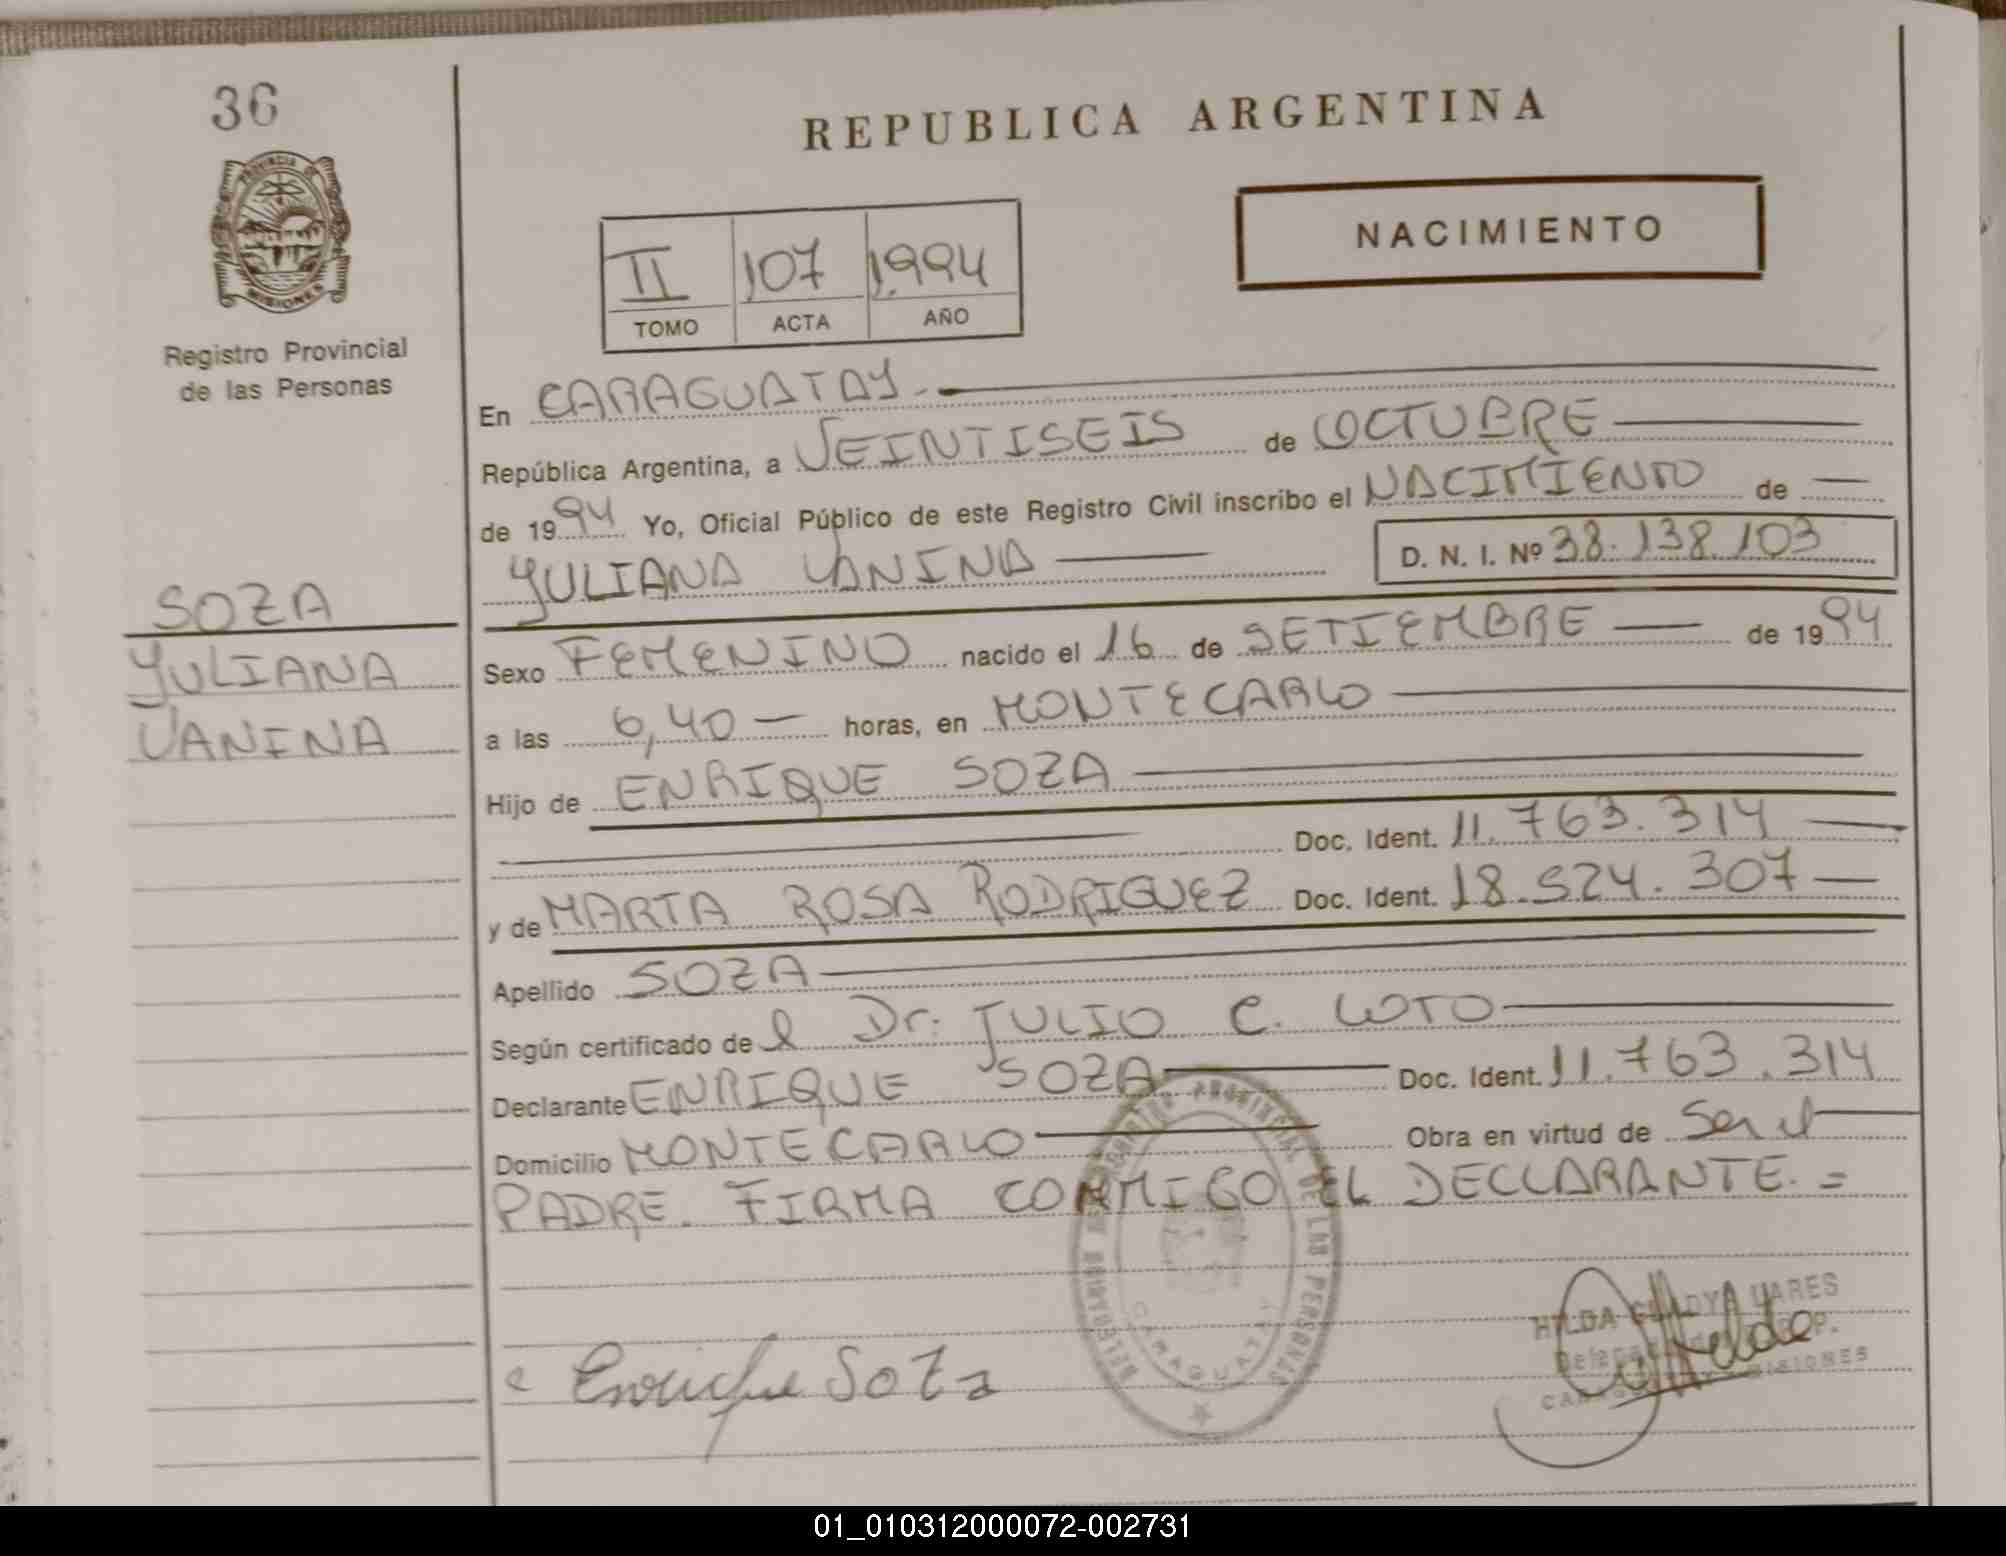 36
PROVINCIA DE
MISIONES
Registro Provincial
de las Personas
SOZA
YULIANA
VANINA
REPUBLICA ARGENTINA
NACIMIENTO
II 107 1.994
TOMO ACTA AÑO
En CARAGUATAY.-
República Argentina, a VEINTISEIS de OCTUBRE
de 1994 Yo, Oficial Público de este Registro Civil inscribo el NACIMIENTO de
YULIANA VANINA D. N. I. Nº 38.138.103
Sexo FEMENINO nacido el 16 de SETIEMBRE de 1994
a las 6,40 horas, en MONTECARLO
Hijo de ENRIQUE SOZA
Doc. Ident. 11.763.314
y de MARTA ROSA RODRIGUEZ Doc. Ident. 18.524.307
Apellido SOZA
Según certificado de l Dr. JULIO C. LOTO
Declarante ENRIQUE SOZA Doc. Ident. 11.763.314
Domicilio MONTECARLO Obra en virtud de Ser el
PADRE. FIRMA CONMIGO EL DECLARANTE.=
PROVINCIAL DE LAS PERSONAS
CARAGUATAY
Enrique Soza
HILDA
MISIONES
01_010312000072-002731